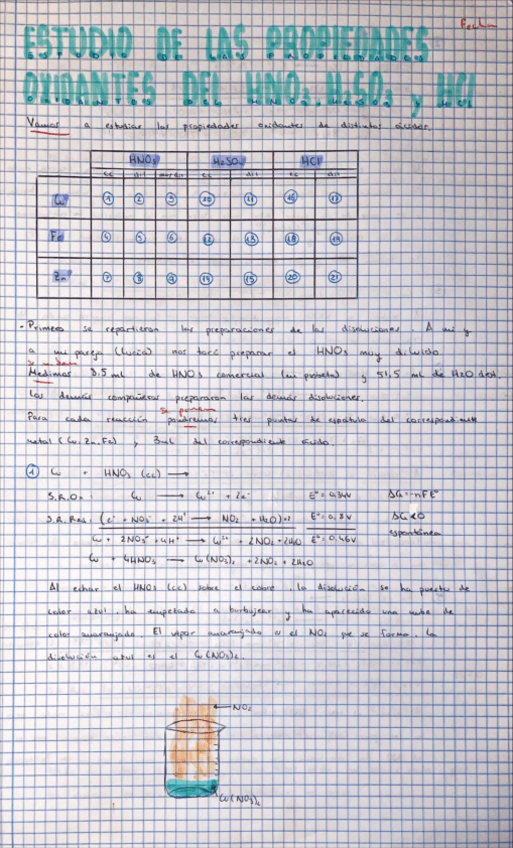 Fecha
ESTUDIO DE LAS PROPIEDADES
OXIDANTES DEL HNO3, H2SO4 y HCl
Vamos a estudiar las propiedades oxidantes de distintos ácidos.
HNO3 H2SO4 HCl
cc dil muy dil cc dil cc dil
Cu 1 2 3 10 11 16 17
Fe 4 5 6 12 13 18 19
Zn 7 8 9 14 15 20 21
- Primero se repartieron las preparaciones de las disoluciones. A mi y
a mi pareja (Lucía) nos tocó preparar el HNO3 muy diluido.
se miden
Medimos 8,5 mL de HNO3 comercial (en probeta) y 51,5 mL de H2O dest.
Los demás compañeros prepararon las demás disoluciones.
se ponen
Para cada reacción pondremos tres puntas de espátula del correspondiente
metal (Cu, Zn, Fe) y 3mL del correspondiente ácido.
1 Cu + HNO3 (cc) →
S.R.Ox: Cu → Cu2+ + 2e- E°= 0,34V ΔG=-nFE°
S.R.Red: (e- + NO3- + 2H+ → NO2 + H2O)·2 E°= 0,8V ΔG<0
Cu + 2NO3- + 4H+ → Cu2+ + 2NO2 + 2H2O E°= 0,46V espontánea
Cu + 4HNO3 → Cu(NO3)2 + 2NO2 + 2H2O
Al echar el HNO3 (cc) sobre el cobre, la disolución se ha puesto de
color azul, ha empezado a burbujear y ha aparecido una nube de
color anaranjado. El vapor anaranjado es el NO2 que se forma. La
disolución azul es el Cu(NO3)2.
NO2
Cu(NO3)2